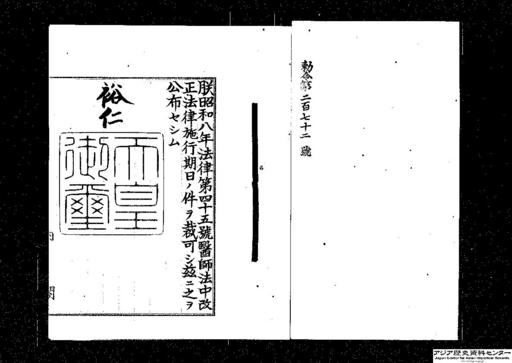 勅令第二百七十二號
朕昭和八年法律第四十五號醫師法中改
正法律施行期日ノ件ヲ裁可シ茲ニ之ヲ
公布セシム
裕仁
天皇
御璽
内閣
アジア歴史資料センター
Japan Center for Asian Historical Records